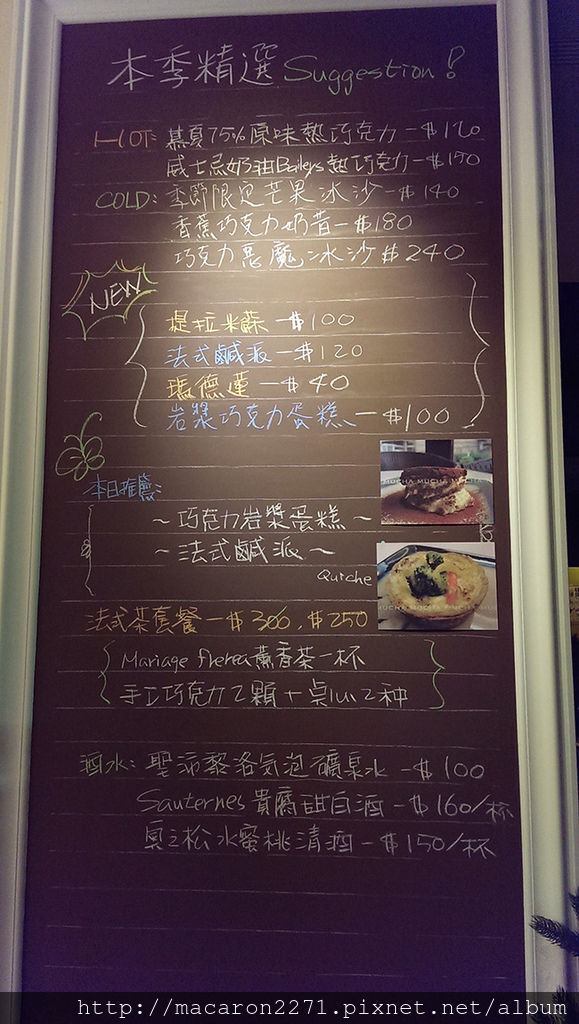 本季精選 Suggestion!
HOT: 慕夏75%原味熱巧克力-$170
威士忌奶油Baileys熱巧克力-$170
COLD: 季節限定芒果冰沙-$140
香蕉巧克力奶昔-$180
巧克力惡魔冰沙$240
NEW
提拉米蘇-$100
法式鹹派-$120
瑪德蓮-$40
岩漿巧克力蛋糕-$100
本日推薦
~巧克力岩漿蛋糕~
~法式鹹派~
Quiche
MUCHA MUCHA MUCHA
MUCHA MUCHA MUCHA
法式茶套餐-$300.$250
Mariage frerea薰香茶一杯
手工巧克力2顆+
酒水: 聖沛黎洛氣泡礦泉水-$100
Sauternes貴腐甜白酒-$160/杯
奧之松水蜜桃清酒-$150/杯
http://macaron2271.pixnet.net/album